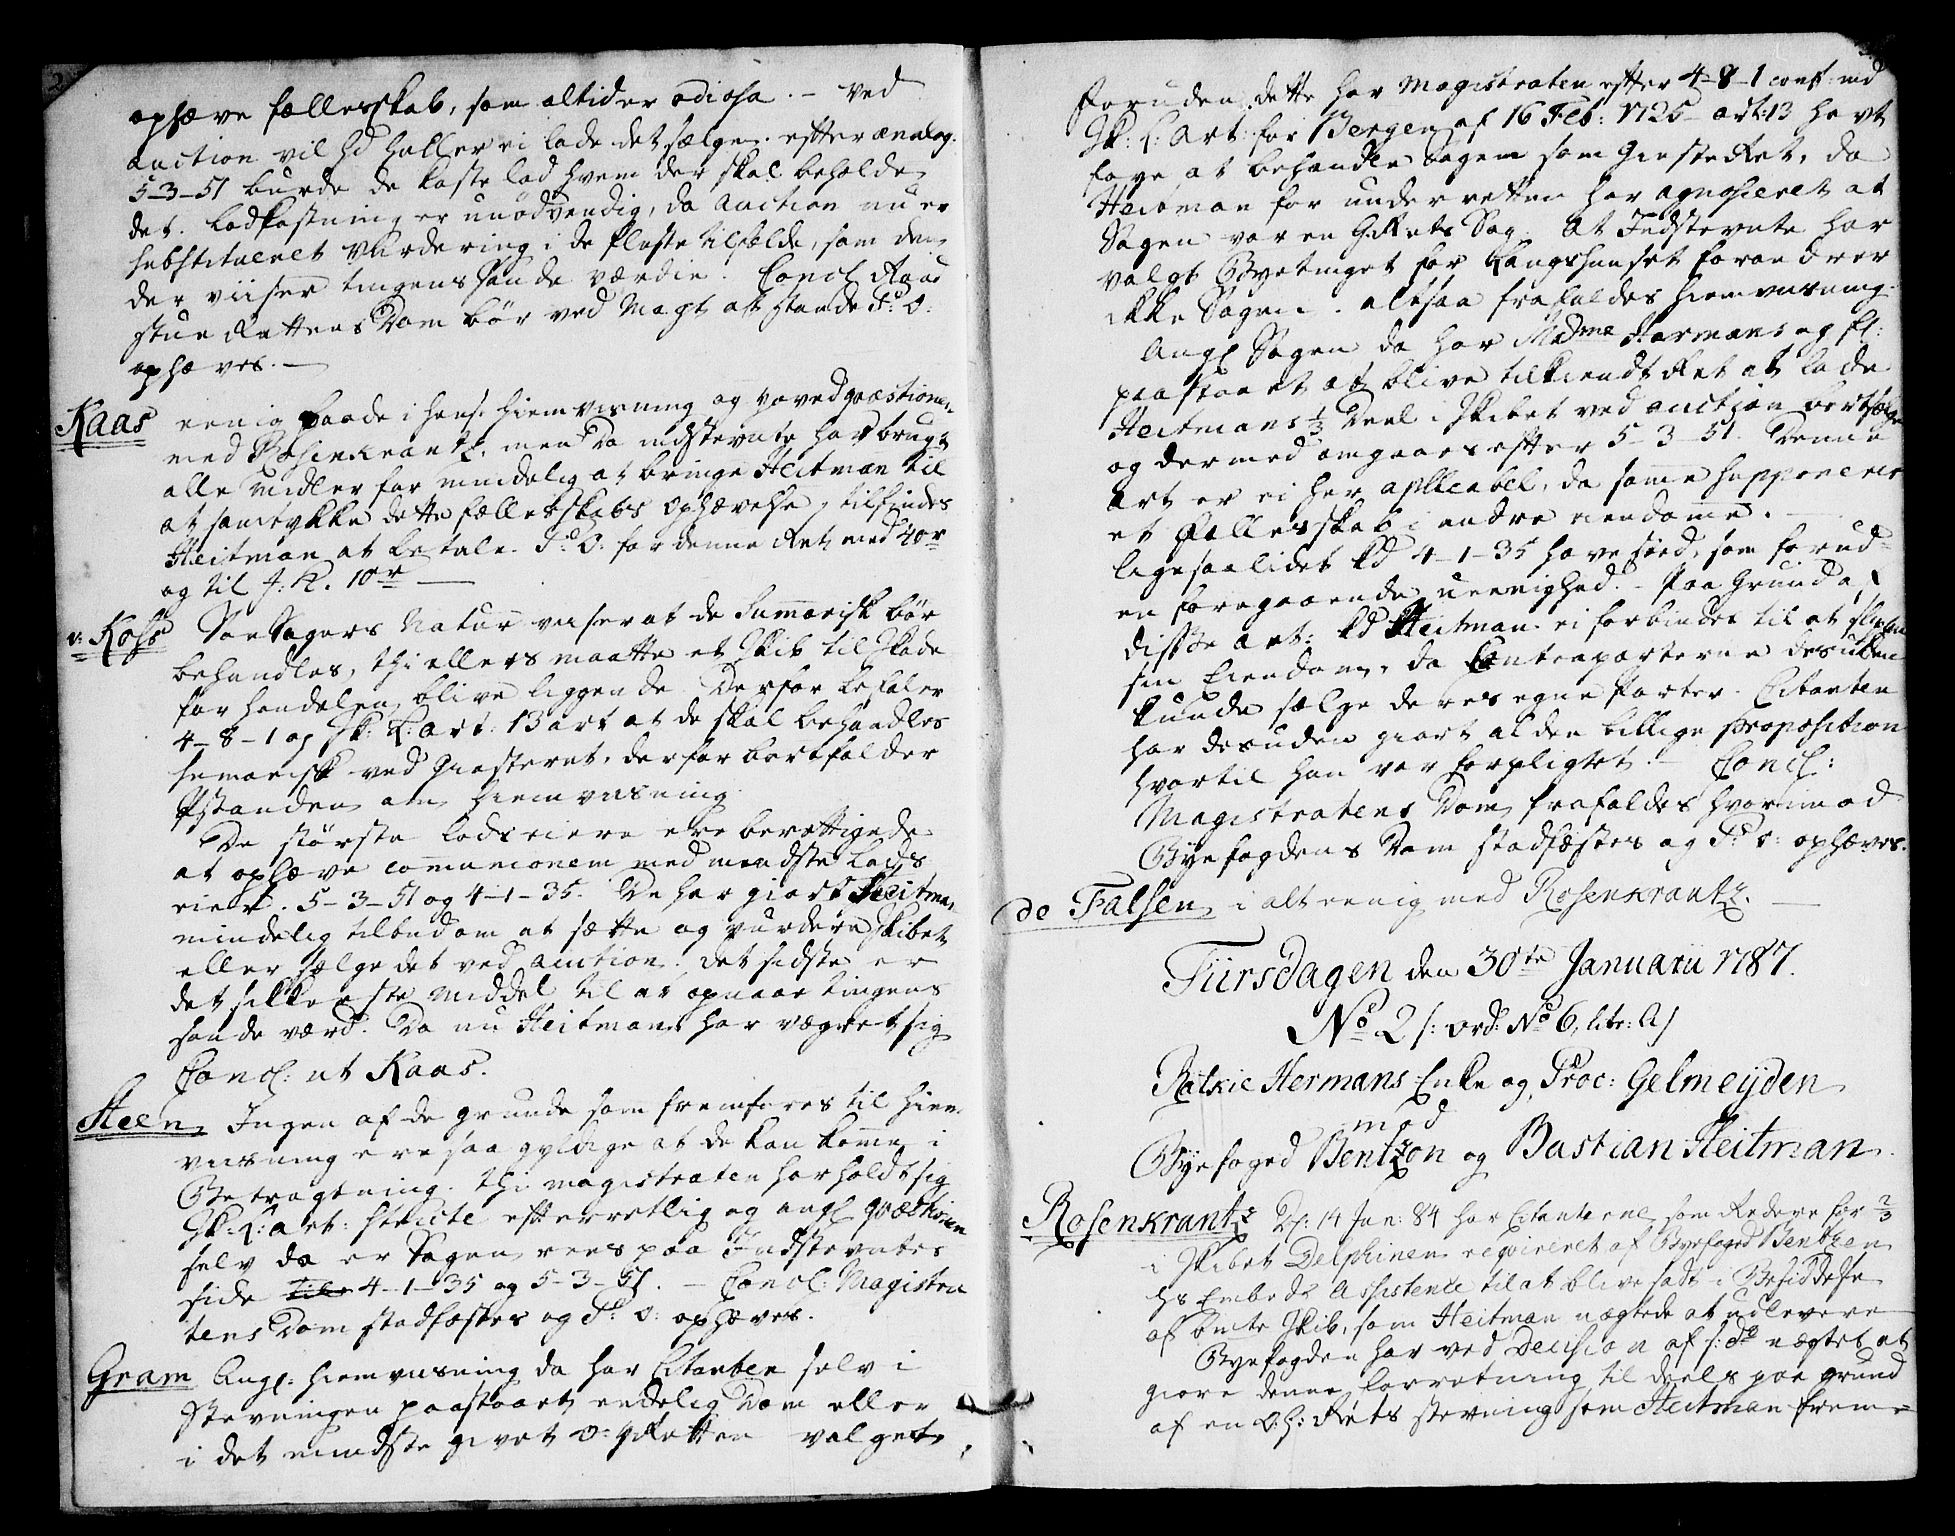 ophæve fællesskab, som altid er odiosa. - Ved
auction vil hd heller ei lade det sælge. efter analog.
5-3-51 burde de kaste lod hvem der skal beholde
det. Lodkastning er unødvendig, da auction nu er
substitueret vurdering i de fleste tilfælde, som den
der viiser tingens sande værdie. Concl Raad
stue Rettens Dom bør ved Magt att stande P: O:
ophæves. -
Kaas eenig baade i hens. hiemvisning og hovedqvæstionen
med Rosenkrantz. men da indstevnte har brugt
alle Midler for mindelig at bringe Heitman til
at samtykke dette fællesskabs Ophævelse, tilfindes
Heitman at betale P: O: for denne Ret med 40 r
og til J: K. 10 r
v: Koss Søe Sagers Natur viiser at de Summarisk bør
behandles, thi ellers maatte et Skib til Skade
for handelen blive liggende. Derfor befaler
4-8-1 og Sk: L: art: 13 art at de skal behandles
sumarisk ved Giæsteret, derfor bortfalder
Pstanden om hiemvisning.
De største lodseiere ere berettigede
at ophæve communionem med mindste lods
eier. 5-3-51 og 4-1-35. De har giort Heitman
mindelig tilbud om at sætte og vurdere Skibet
eller sælge det ved auction. det sidste er
det sikkerste Middel til at opnaae tingens
sande værd. Da nu Heitman har vægret sig
Concl: ut Kaas.
Steen Ingen af de grunde som fremføres til hiem
viisning ere saa gyldige at de kan komme i
Betragtning. thi magistraten har holdt sig
Sk: L: art: stricte efterrettlig og angl qvæstionen
selv da er Sagen reen paa Indstevntes
side 4-1-35 og 5-3-51. - Concl: Magistra
tens Dom stadfæstes og P: O: ophæves.
Gram Angl: hiemviisning da har Citanten selv i
Stevningen paastaaet endelig Dom eller
i det mindste givet O: Retten valget
foruden dette har Magistraten efter 4-8-1 conf: med
Sk: L: Art: for Bergen af 16 Feb: 1725 art: 13 havt
lov at behandle Sagen som Giesteret, da
Heitman for underretten har agnosceret at
Sagen var en GRets Sag. At Indstevnte har
valgt Byetinget for Langhuuset forandrer
ikke Sagen. altsaa frafaldes hiemviisning.
Angl Sagen da har Madme Harmans og fl:
paastaaet at blive tilkiendt Ret at lade
Heitmans 1/3 Deel i Skibet ved auction bortsælge
og dermed omgaaes efter 5-3-51. Denne
art er ei her aplicabel, da samme supponerer
et fællesskab i andre eiendomme.
ligesaalidet kd 4-1-35 have sted, som forud-
en foregaaende ueenighed. - Paa Grund af
disse art: kd Heitman ei forbindes til at slippe
sin Eiendom, da Contraparterne desuden
kunde sælge deres egne Parter. Citanten
har desuden giort al den billige proposition
hvortil han var forpligtet. - Concl:
Magistratens Dom frafaldes hvorimod
Byefogdens Dom stadfæstes og P: O: ophæves.
de Falsen i alt eenig med Rosenkrantz. -
Tiirsdagen den 30te Januarii 1787.
No 2 /: ord: No 6, litr: A/
Ratkie Hermans Enke og Proc: Gelmeijden
mod
Byefoged Bentzon og Bastian Heitman.
Rosenkrantz D: 14 Jan: 84 har Citanterne som Redere for 2/3
i Skibet Delphinen reqvireret af Byefoged Bentzon
hs Embeds Assistence til at blive sadt i Besiddelse
af bmte Skib, som Heitman nægtede at udlevere
Byefogden har ved Decision af s: D: nægtet at
giøre denne forretning til deels paa grund
af en O: H: Rets stevning som Heitman frem-